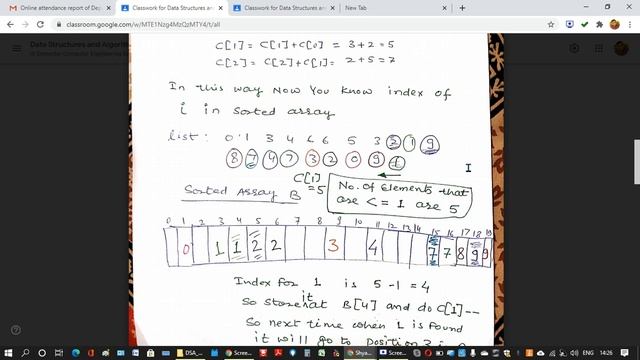 Online attendance report of Dep
Classwork for Data Structures an
Classwork for Data Structures an
New Tab
classroom.google.com/w/MTE1Nzg4MzQzMTY4/t/all
Data Structures and Algorit
C[1] = C[1]+C[0] = 3+2=5
C[2] = C[2]+C[1] = 2+5=7
In this way Now You know index of
i in sorted array
list: 0 1 3 4 6 6 5 3 2 1 9
8 7 4 7 3 2 0 9 1
C[1] =5
No. of Elements that are <= 1 are 5
Sorted Array B
0 1 2 3 4 5 6 7 8 9 10 11 12 13 14 15 16 17 18 19
0 1 1 2 2 3 4 7 7 8 9 9
Index for 1 is 5-1=4
So store it at B[4] and do C[1]--
So next time when 1 is found
it will go to position 3 in
DSA_...
Scree...
Scree...
Shya...
Scree...
ENG
14:26